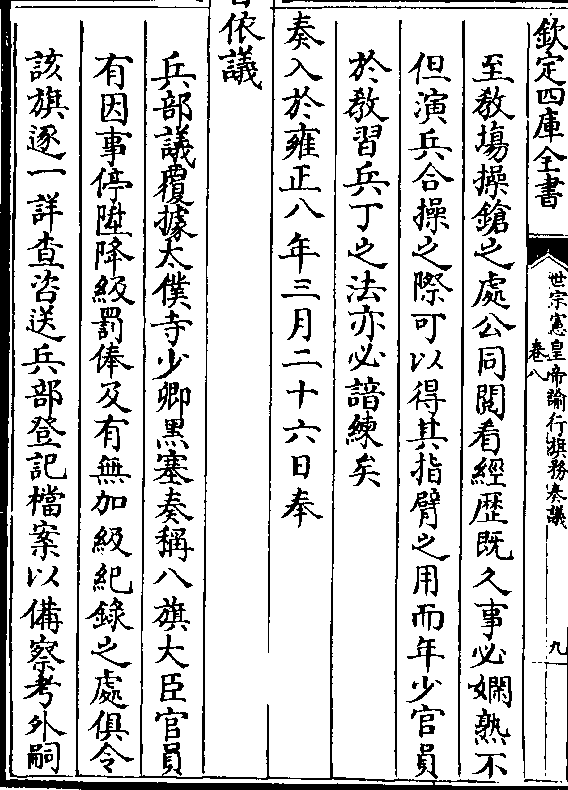 欽定四庫全書
世宗憲皇帝諭行旗務奏議
卷八
九
至教塲操鎗之處公同閱看經歴既久事必嫻熟不
但演兵合操之際可以得其指臂之用而年少官員
於教習兵丁之法亦必諳練矣
奏入於雍正八年三月二十六日奉
依議
兵部議覆據太僕寺少卿黑塞奏稱八旗大臣官員
有因事停陞降級罰俸及有無加級紀錄之處俱令
該旗逐一詳查咨送兵部登記檔案以備察考外嗣